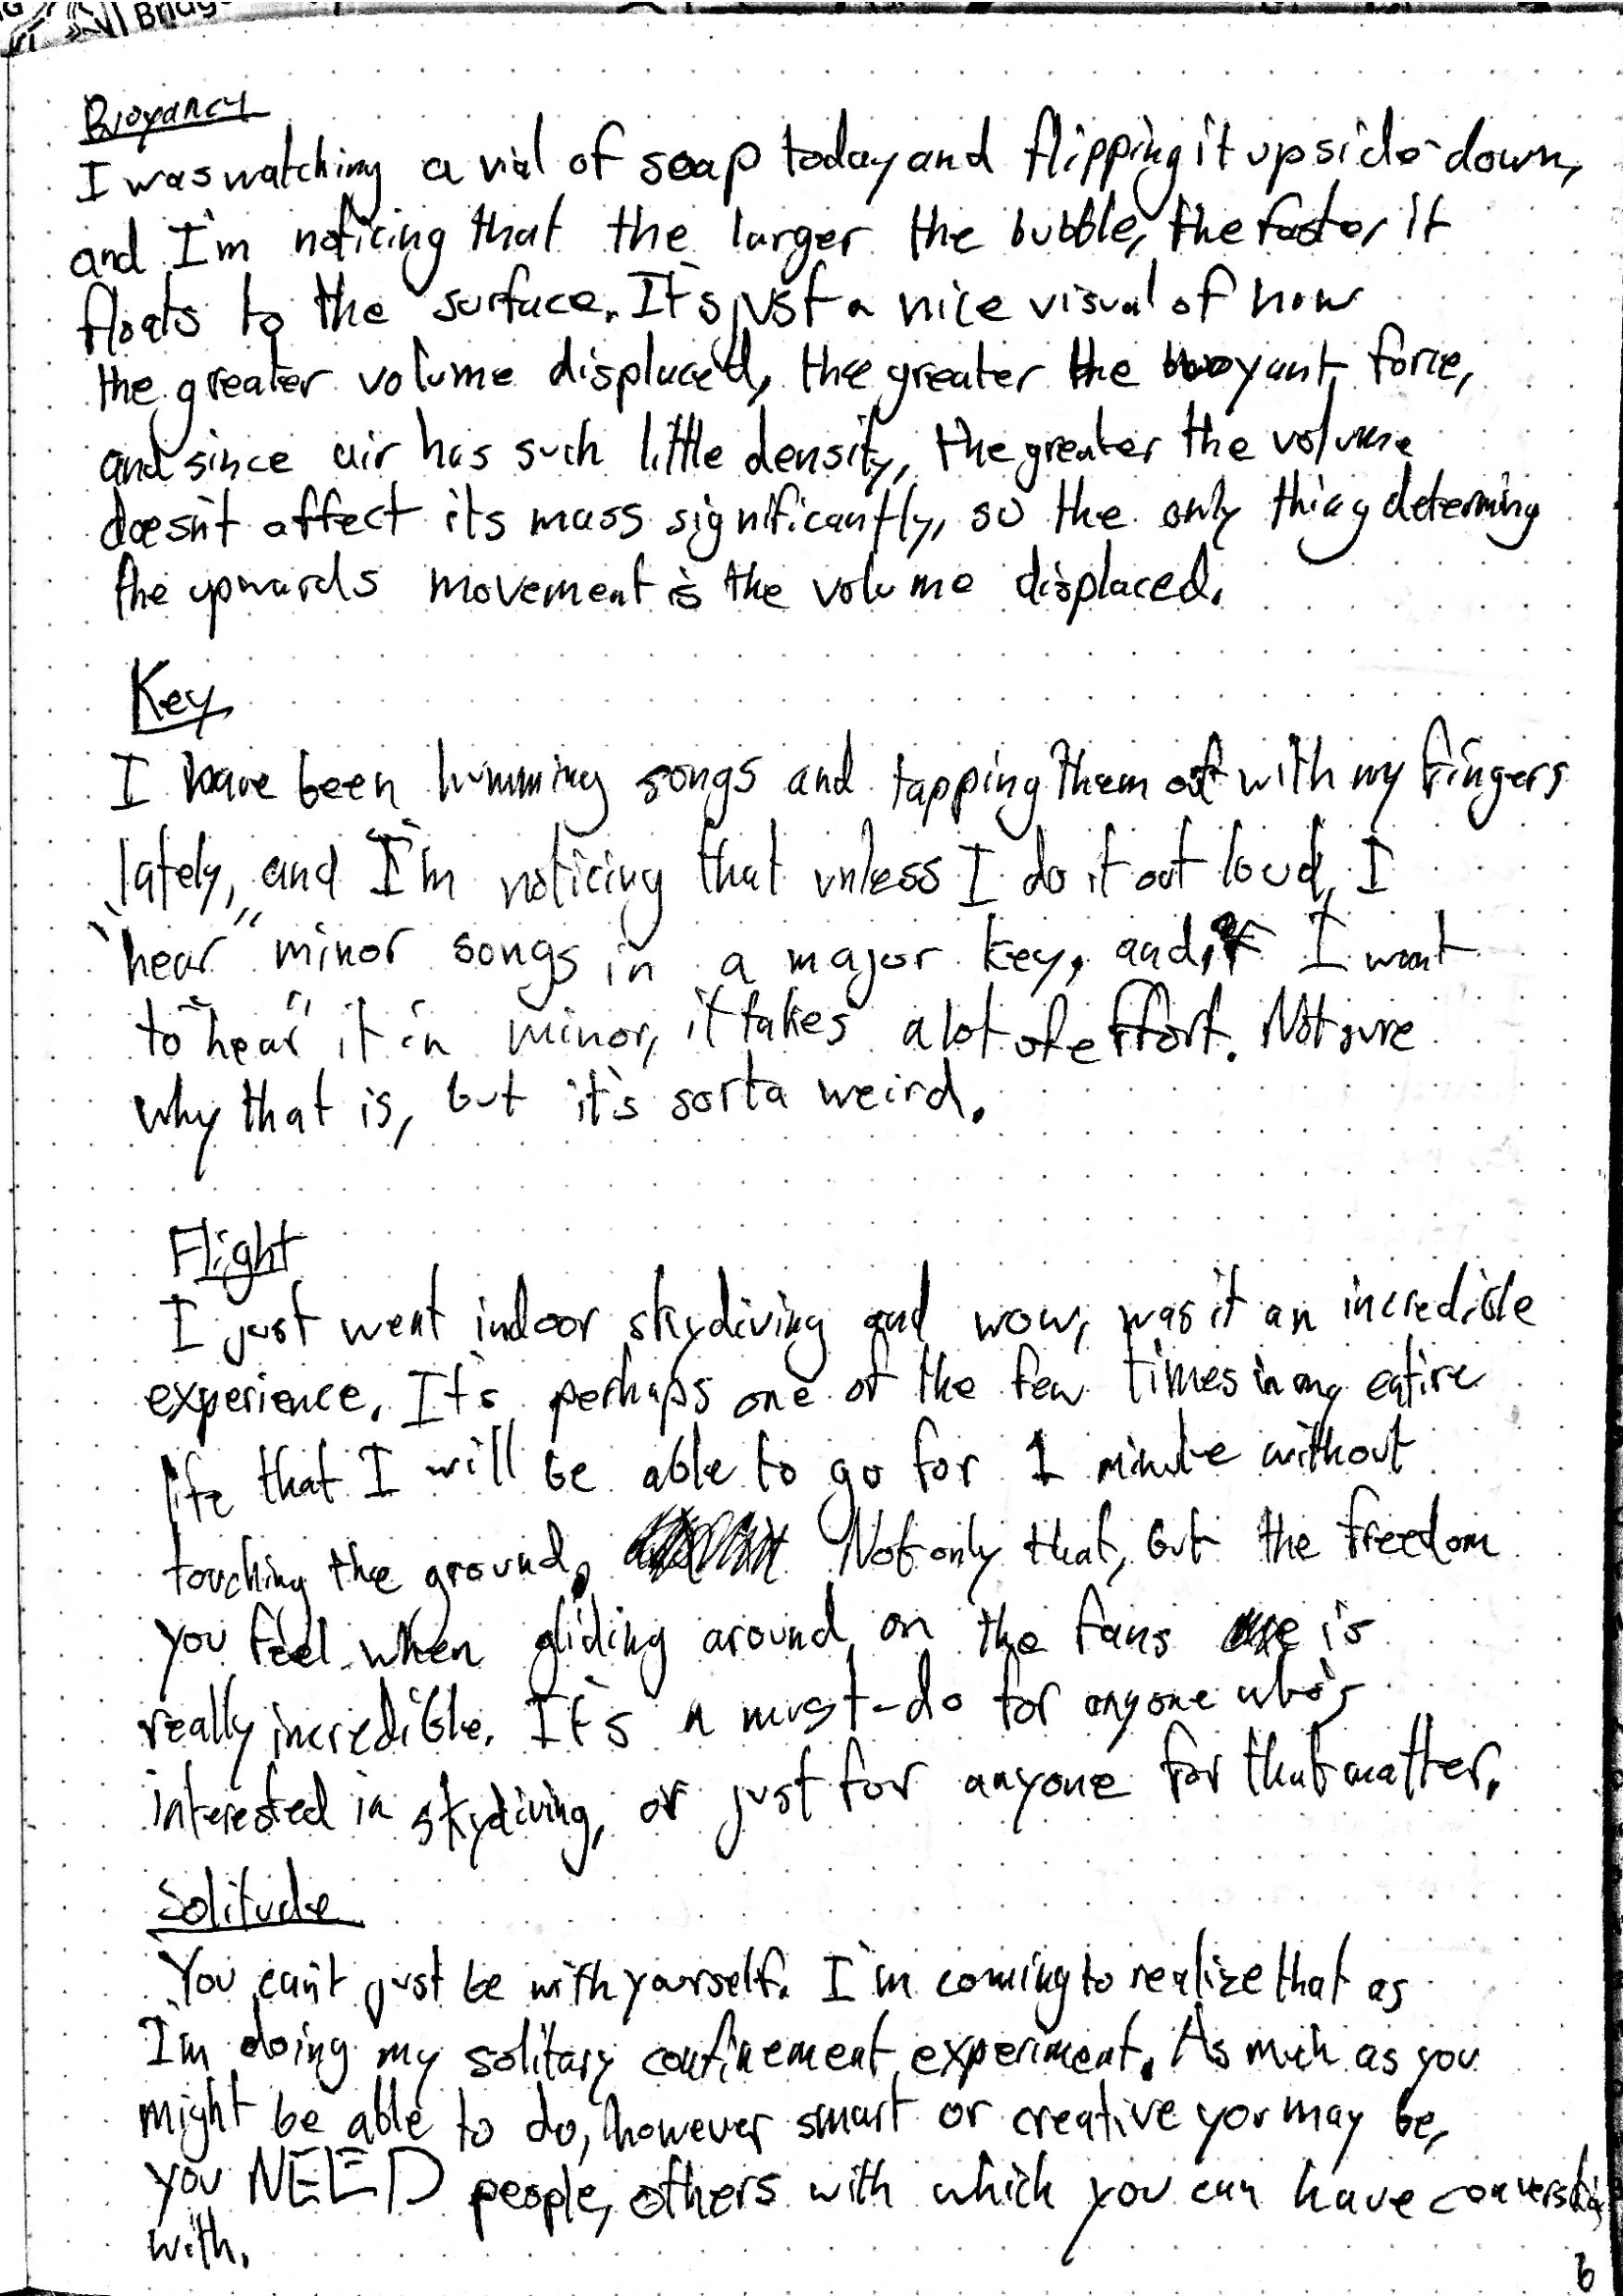 Buoyancy
I was watching a vial of soap today and flipping it upside-down,
and I'm noticing that the larger the bubble, the faster it
floats to the surface. It's just a nice visual of how
the greater volume displaced, the greater the buoyant force,
and since air has such little density, the greater the volume
doesn't affect its mass significantly, so the only thing determing
the upwards movement is the volume displaced.
Key
I have been humming songs and tapping them out with my fingers
lately, and I'm noticing that unless I do it out loud, I
"hear" minor songs in a major key, and if I want
to "hear" it in minor, it takes a lot of effort. Not sure
why that is, but it's sorta weird.
Flight
I just went indoor skydiving and wow, was it an incredible
experience. It's perhaps one of the few times in my entire
life that I will be able to go for 1 minute without
touching the ground. Not only that, but the freedom
you feel when gliding around on the fans is
really incredible. It's a must-do for anyone who's
interested in skydiving, or just for anyone for that matter.
Solitude
You can't just be with yourself. I'm coming to realize that as
I'm doing my solitary confinement experiment. As much as you
might be able to do, however smart or creative you may be,
you NEED people, others with which you can have
with.
6